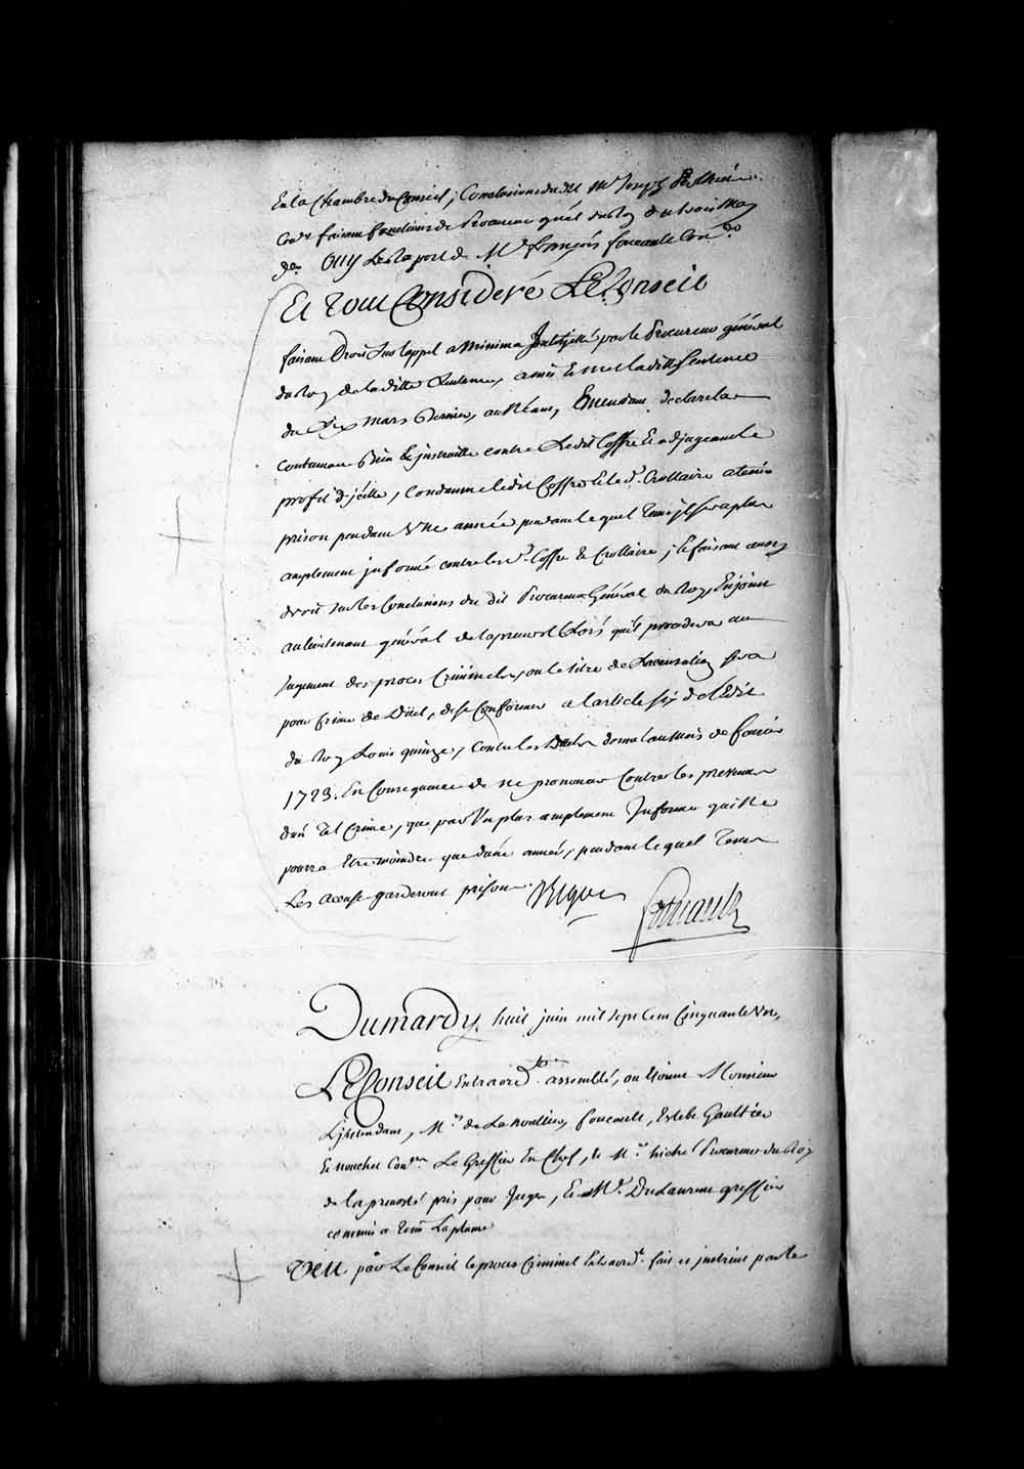 En la Chambre du Conseil; Conclusions du dit Mr Joseph
Conr faisant fonctions de Procureur gnal du Roy
de. OUY Le Raport de Mr françois foucault Conr
Et Tout Consideré LE Conseil
faisant Droit sur l'appel a Minima Interjetté par le Procureur général
du Roy de la ditte Sentence, a mis Et met la ditte Sentence
du Dix mars Dernier, au Néant, Emendant declare la
contumace Bien instruitte contre Ledit Coffre Et adjugeant le
profit d'jcelle, Condamne ledit Coffre Et led. Crollaire a tenir
prison pendant Une année pendant lequel Tems jl sera plus
amplement jnformé contre lesd. Coffre Et Crollaire; Et faisant aussy
droit sur les Conclusions du dit Procureur Général du Roy, Enjoint
au lieutenant général de la prevosté Lors qu'il procedera au
Jugement des proces Criminels, ou le titre de Laccusation sera
pour Crime de Düel, de se Conformer a l'article six de l'Edit
du Roy Louis quinze, Contre les Duels donné au mois de fevrier
1723. En Consequence de ne prononcer Contre les prevenus
d'un tel Crime, que par Un plus amplement Informé qui Ne
pourra Etre moindre que d'une année, pendant lequel Tems
Les accusés garderont prison. Bigot
foucault
Du mardy, huit juin mil sept Cent Cinquante Un,
LE Conseil Extraord. assemblé, ou Etoient Monsieur
L'jntendant, Mrs de La Novllier, foucault, Estebe Gaultier
Et nouchet Conrs Le Greffier En Chef, Et Mr hiché Procureur du Roy
de la prevosté pris pour Juge, Et Mr. Du Laurent greffier
commis a tenir La plume
VEU par Le Conseil le proces Criminel Extraord. fait et jnstruit par le